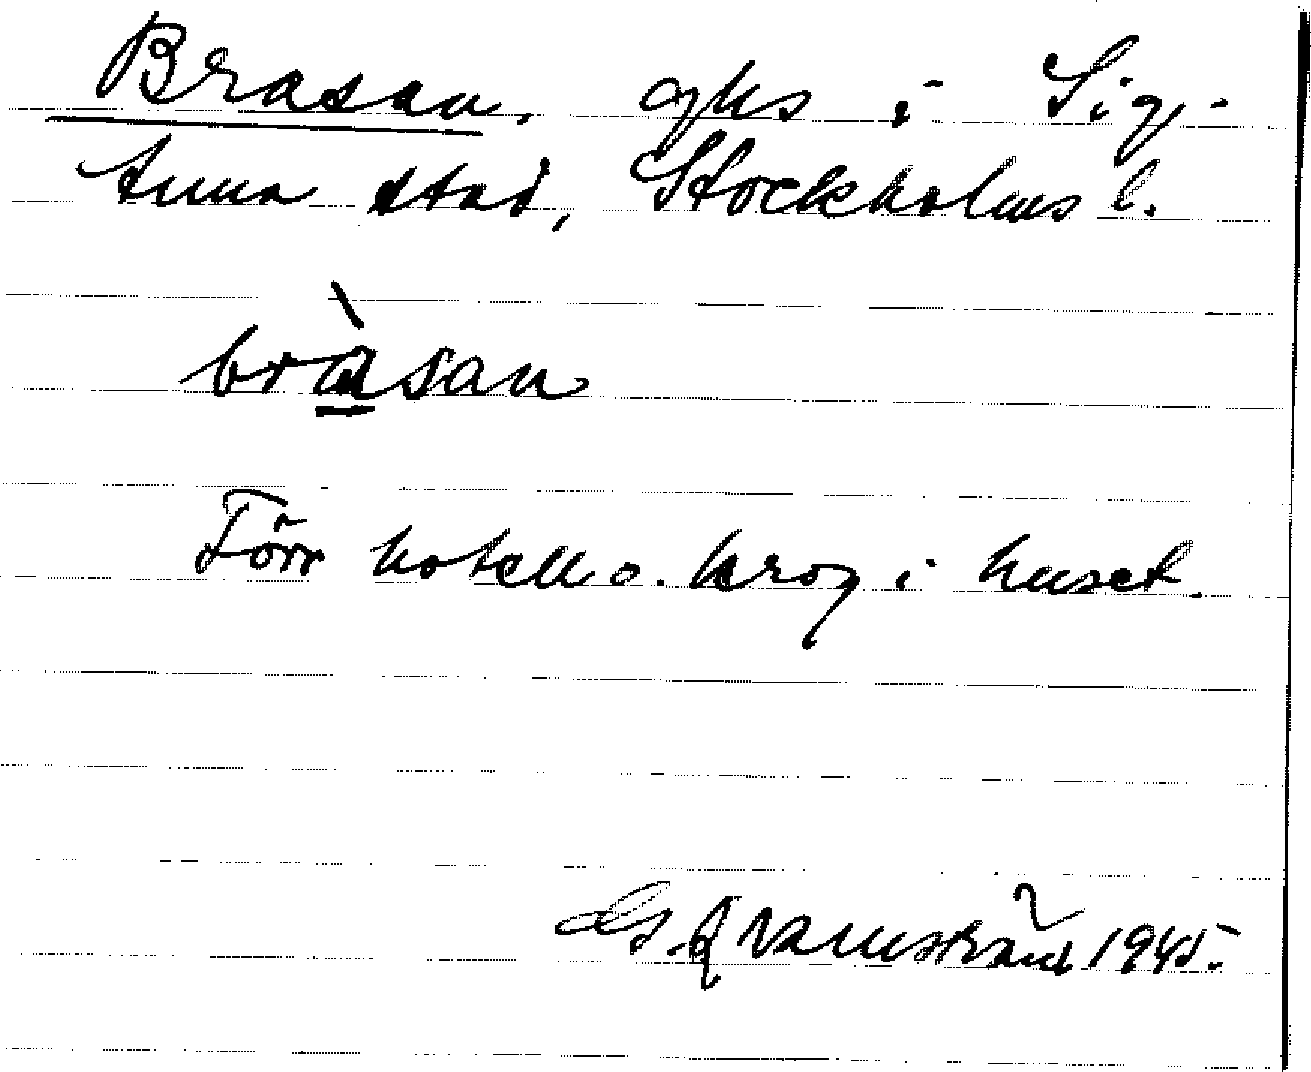 Brasan, ghs i Sig-
tuna stad, Stockholms l.
bràsan
Förr hotell o. krog i huset.
Qvarnström 1945.